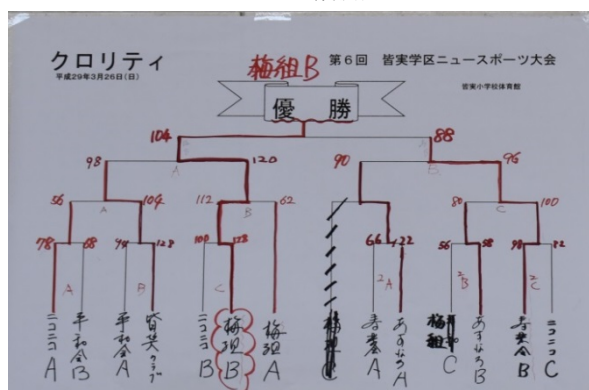 クロリティ
平成29年3月26日(日)
梅組B
第6回 皆実学区ニュースポーツ大会
皆実小学校体育館
優 勝
104 88
98 120 90 96
A B B C
56 104 112 62 80 100
78 68 94 128 100 128 66 122 56 58 90 82
A B C 2A 2B 2C
ニコニコA
平和会B
平和会A
皆実クラブ
ニコニコB
梅組B
梅組A
寿会A
あすなろA
梅組C
あすなろB
寿会B
ニコニコC